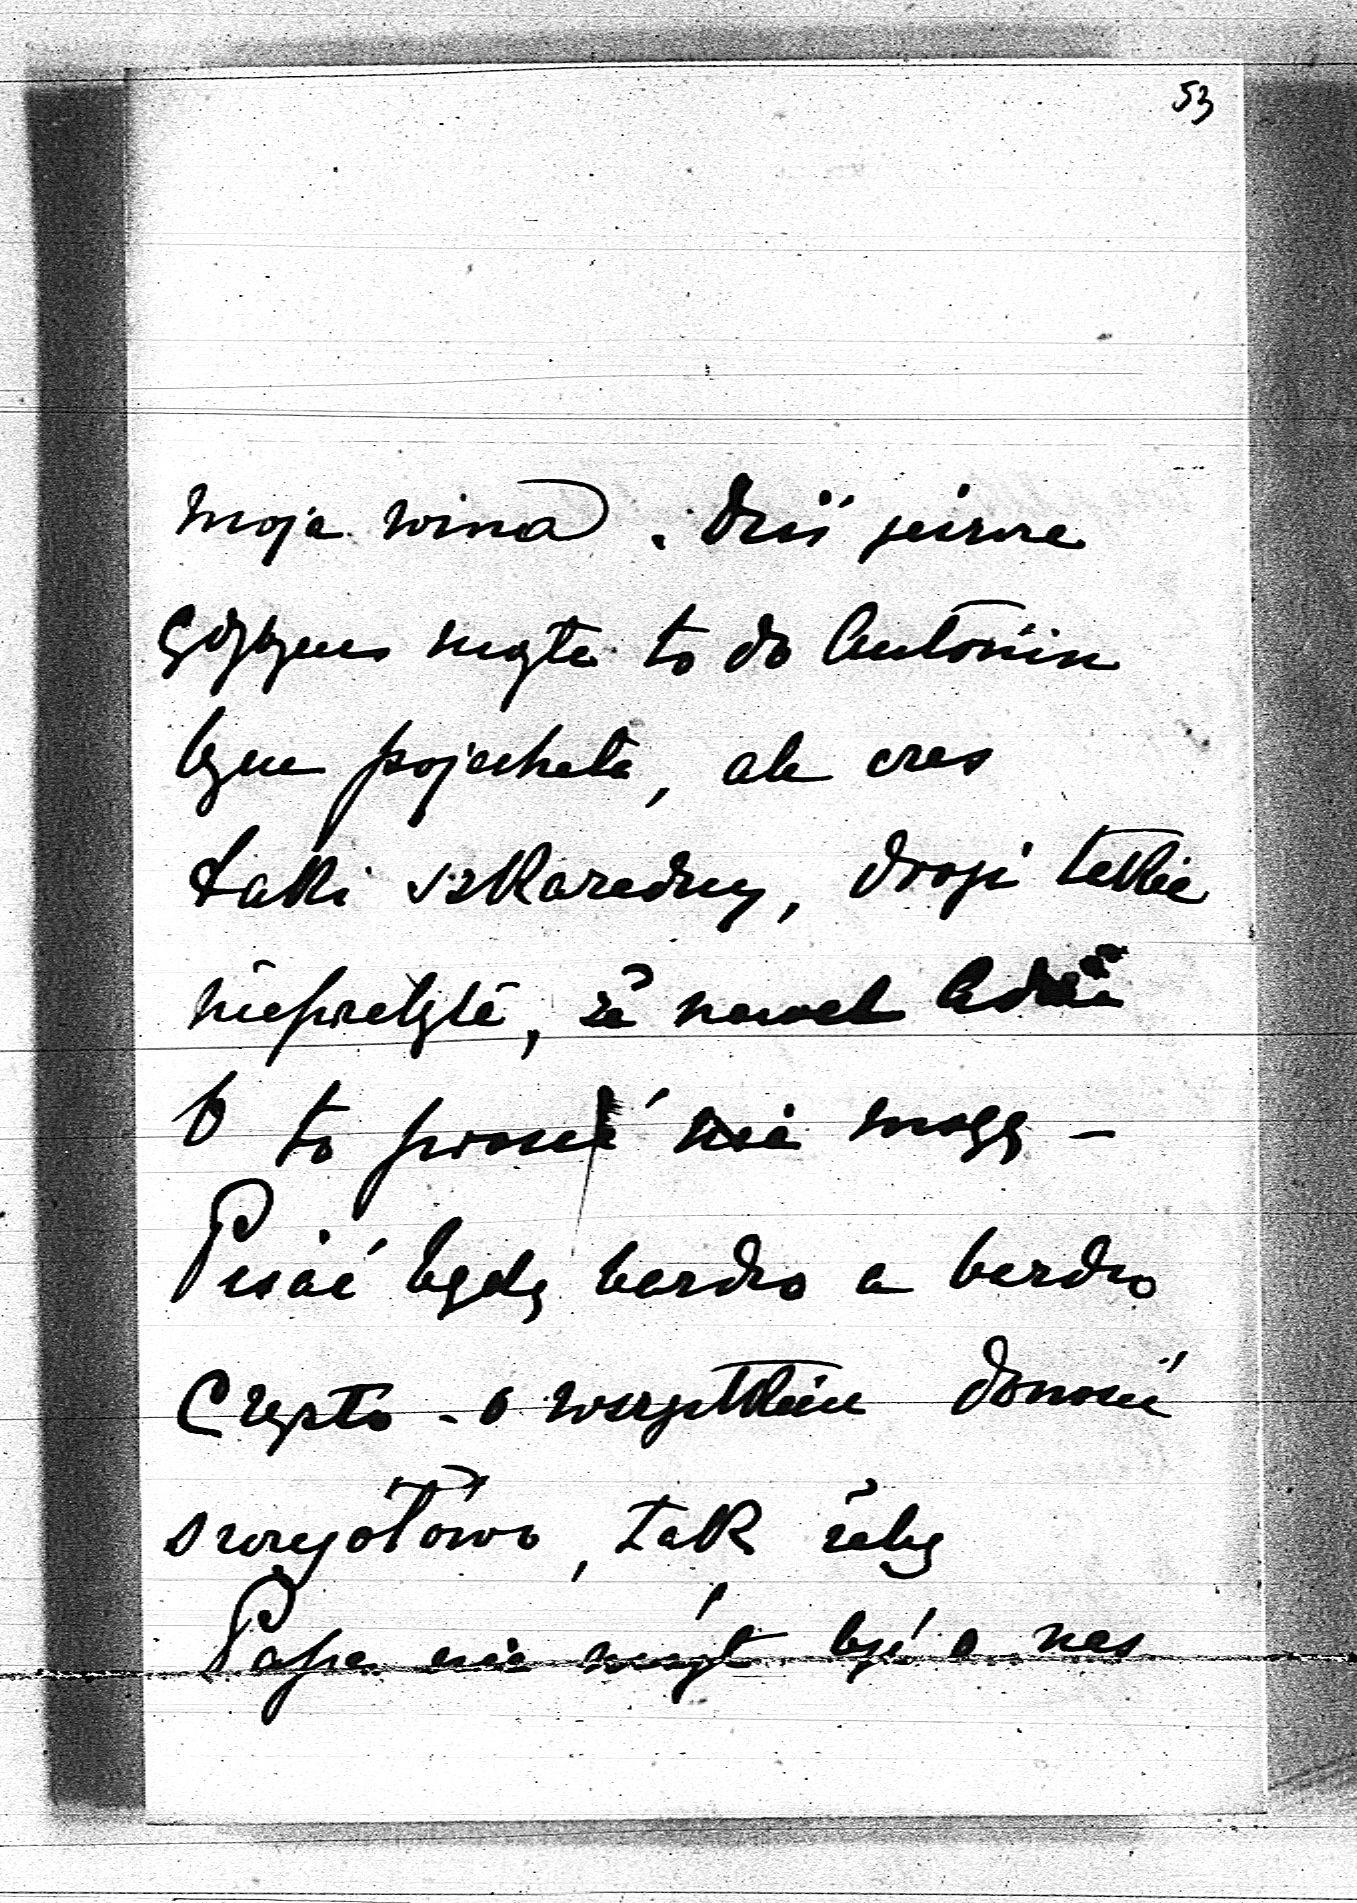 53
moja wina. Dziś jeszcze
gdybym mogła to do Antonin
bym pojechała, ale czas
taki szkaradny, drogi takie
niebyłe, że nawet
O to prosić nie mogę –
Pisać będę bardzo a bardzo
często – o wszystkiem donosić
szczegółowo, tak żeby
Papa nie mógł być o nas